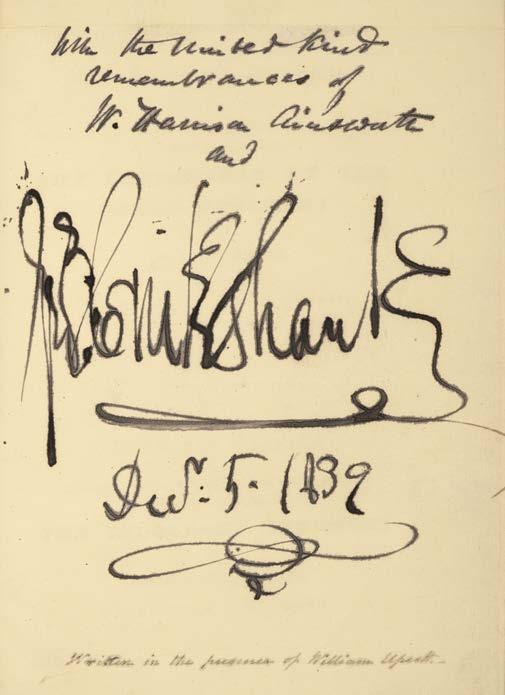 With the United kind
remembrances of
W. Harrison Ainsworth
and
Geo Cruikshank
Decr. 5. 1839
Written in the presence of William Upcott.